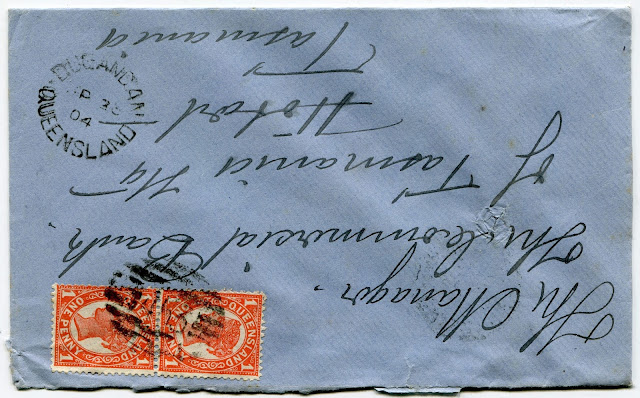 The Manager.
The Commercial Bank
of Tasmania
Hobart
Tasmania
DUGANDAN
04
QUEENSLAND
QUEENSLAND
1 ONE PENNY 1
QUEENSLAND
1 PENNY 1